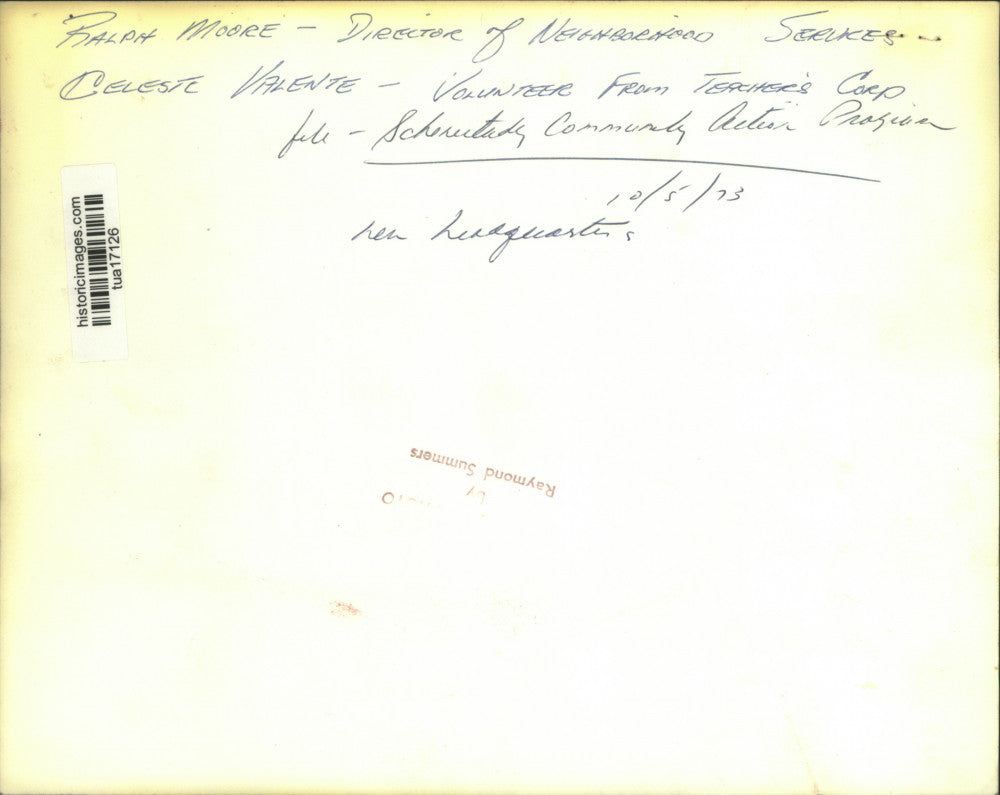 RALPH MOORE - DIRECTOR of NEIGHBORHOOD SERVICES -
CELESTE VALENTE - VOLUNTEER FROM TEACHER'S CORP
file - Schenectady Community Action Program
10/5/73
new headquarters
historicimages.com
tua17126
by
Raymond Summers